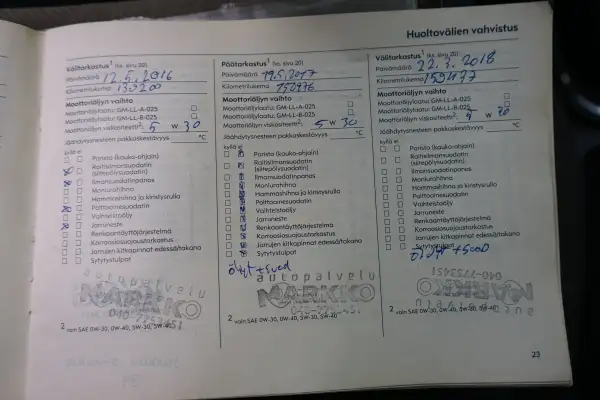 Huoltovälien vahvistus
Välitarkastus¹ (ks. sivu 20)
Päivämäärä 12.5.2016
Kilometrilukema
Moottoriöljyn vaihto
Moottoriöljylaatu: GM-LL-A-025
Moottoriöljylaatu: GM-LL-B-025
Moottoriöljyn viskositeetti²: 5 W 30
Jäähdytysnesteen pakkaskestävyys °C
kyllä ei
Paristo (kauko-ohjain)
Raitisilmansuodatin
(siitepölysuodatin)
Ilmansuodatinpanos
Moniurahihna
Hammashihna ja kiristysrulla
Polttoainesuodatin
Vaihteistoöljy
Jarruneste
Renkaantäyttöjärjestelmä
Korroosiosuojaustarkastus
Jarrujen kitkapinnat edessä/takana
Sytytystulpat
autopalvelu
MARKKO
2 vain SAE 0W-30, 0W-40, 5W-30, 5W-40
Päätarkastus¹ (ks. sivu 20)
Päivämäärä 19.5.2017
Kilometrilukema
Moottoriöljyn vaihto
Moottoriöljylaatu: GM-LL-A-025
Moottoriöljylaatu: GM-LL-B-025
Moottoriöljyn viskositeetti²: 5 W 30
Jäähdytysnesteen pakkaskestävyys °C
kyllä ei
Paristo (kauko-ohjain)
Raitisilmansuodatin
(siitepölysuodatin)
Ilmansuodatinpanos
Moniurahihna
Hammashihna ja kiristysrulla
Polttoainesuodatin
Vaihteistoöljy
Jarruneste
Renkaantäyttöjärjestelmä
Korroosiosuojaustarkastus
Jarrujen kitkapinnat edessä/takana
Sytytystulpat
öljyt + suod
autopalvelu
MARKKO
2 vain SAE 0W-30, 0W-40, 5W-30, 5W-40
Välitarkastus¹ (ks. sivu 20)
Päivämäärä 22.3.2018
Kilometrilukema 159477
Moottoriöljyn vaihto
Moottoriöljylaatu: GM-LL-A-025
Moottoriöljylaatu: GM-LL-B-025
Moottoriöljyn viskositeetti²: 5 W 30
Jäähdytysnesteen pakkaskestävyys °C
kyllä ei
Paristo (kauko-ohjain)
Raitisilmansuodatin
(siitepölysuodatin)
Ilmansuodatinpanos
Moniurahihna
Hammashihna ja kiristysrulla
Polttoainesuodatin
Vaihteistoöljy
Jarruneste
Renkaantäyttöjärjestelmä
Korroosiosuojaustarkastus
Jarrujen kitkapinnat edessä/takana
Sytytystulpat
öljyt + suod
040-7753451
MARKKO
autopalvelu
2 vain SAE 0W-30, 0W-40, 5W-30, 5W-40
23